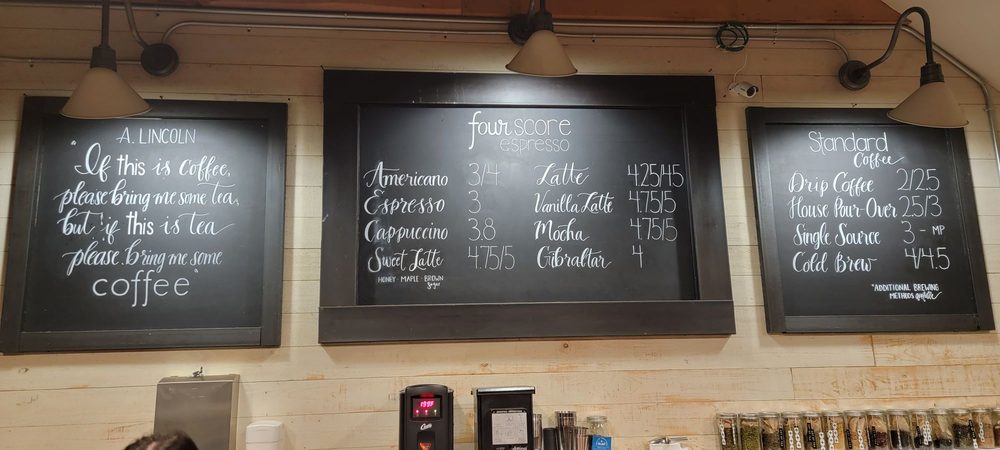 A. LINCOLN
"If this is coffee,
please bring me some tea,
but if this is tea
please bring me some"
coffee
four score
espresso
Americano 3/4
Espresso 3
Cappuccino 3.8
Sweet Latte 4.75/5
HONEY MAPLE BROWN
Sugar
Latte 4.25/4.5
Vanilla Latte 4.75/5
Mocha 4.75/5
Gibraltar 4
Standard
Coffee
Drip Coffee 2/2.5
House Pour-Over 2.5/3
Single Source 3 - MP
Cold Brew 4/4.5
*ADDITIONAL BREWING
METHODS available
Curtis